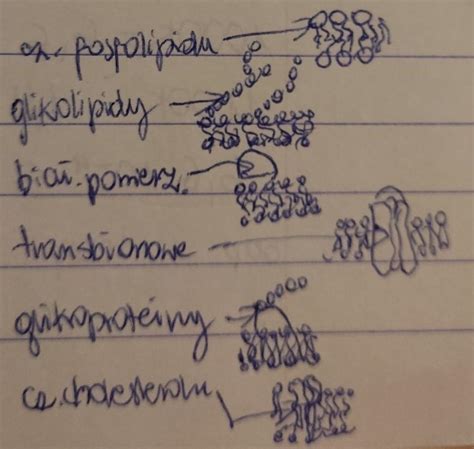 cz. fosfolipidu
glikolipidy
biał. pomierz.
transbłonowe
glikoproteiny
cz. cholesterolu